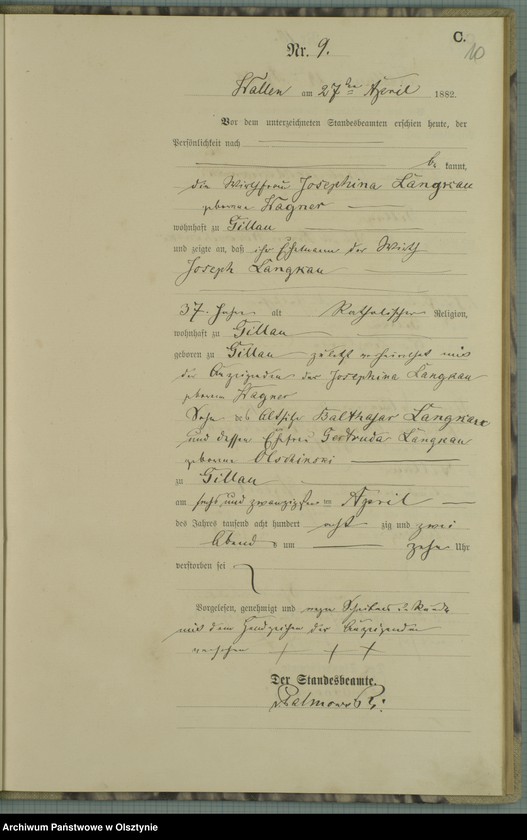 C.
10
Nr. 9.
Wallen am 27ten April 1882.
Vor dem unterzeichneten Standesbeamten erschien heute, der
Persönlichkeit nach
be kannt,
die Wirthfrau Josephina Langkau
geborene Wagner
wohnhaft zu Gillau
und zeigte an, daß ihr Ehemann der Wirth
Joseph Langkau
37 Jahre alt Katholischer Religion,
wohnhaft zu Gillau
geboren zu Gillau zuletzt verheirathet mit
der Anzeigenden der Josephina Langkau
geborene Wagner
Sohn des Balthasar Langkau
und dessen Ehefrau Gertruda Langkau
geborene Olschinski
zu Gillau
am sechs und zwanzigsten April
des Jahres tausend acht hundert acht zig und zwei
Abends um zehn Uhr
verstorben sei
Vorgelesen, genehmigt und wegen Schreibens
mit dem Handzeichen der Anzeigenden
versehen + + +
Der Standesbeamte.
Palmowski
Archiwum Państwowe w Olsztynie